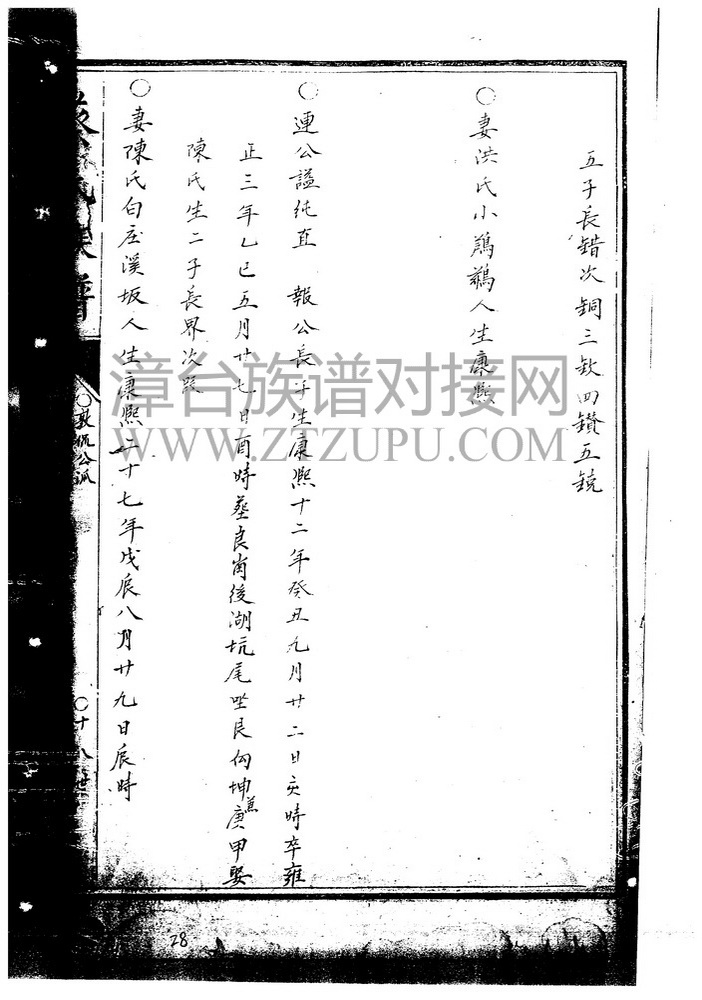 五子長錯次銅三鈫四鑽五鐃
○妻洪氏小鷓鵜人生康熙
○連公諡純直 報公長子生康熙十二年癸丑九月廿二日亥時卒雍
正三年乙巳五月廿七日酉時葬良崗後湖坑尾坐艮向坤兼庚甲娶
陳氏生二子長界次
○妻陳氏白庒溪坂人生康熙二十七年戊辰八月廿九日辰時
氏族譜
○敦侃公派
○十八世
漳台族谱对接网
WWW.ZTZUPU.COM
28